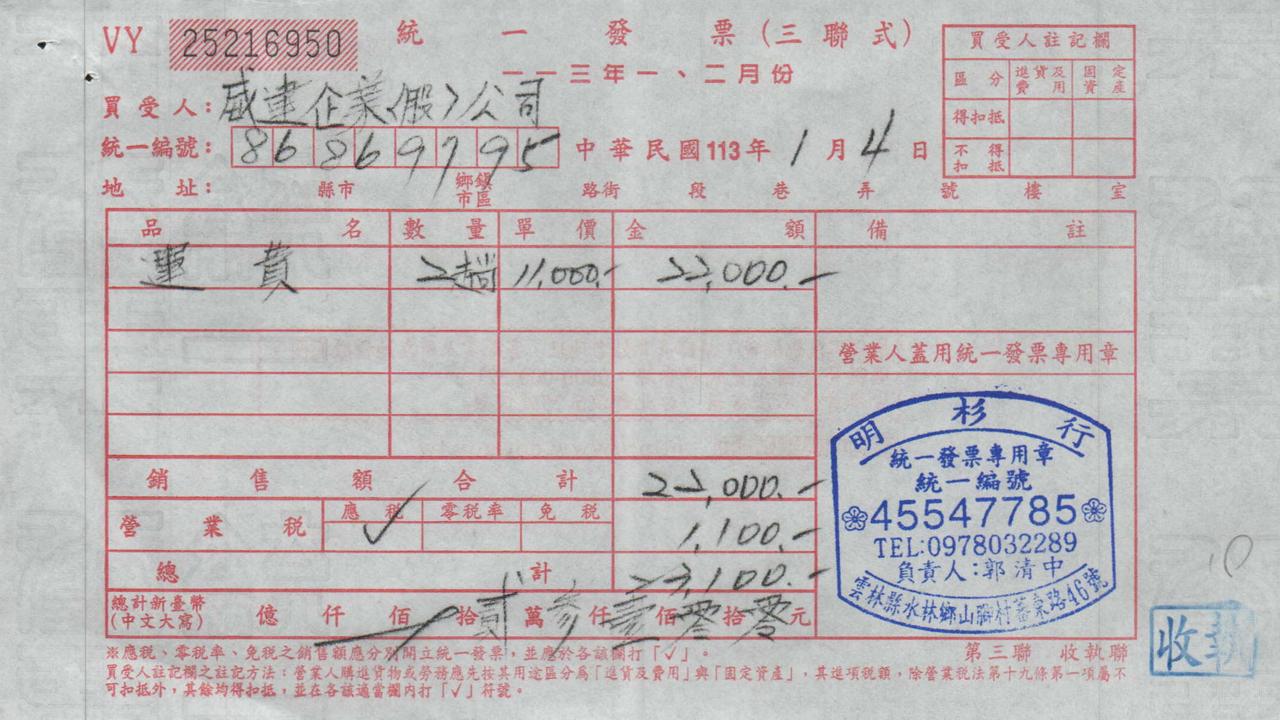 VY 25216950 統一發票(三聯式)
一一三年一、二月份
買受人註記欄
區分 進貨及費用 固定資產
得扣抵
不得扣抵
買受人:威建企業(股)公司
統一編號: 中華民國113年1月4日
地址: 縣市 鄉鎮市區 路街 段 巷 弄 號 樓 室
品名 數量 單價 金額 備註
運費 2趟 11,000.- 22,000.-
營業人蓋用統一發票專用章
銷售額合計 22,000.-
營業稅 應稅 ✓ 零稅率 免稅 1,100.-
總計 23,100.-
總計新臺幣(中文大寫) 億 仟 佰 拾貳萬參仟壹佰零拾零元
明杉行
統一發票專用章
統一編號
45547785
TEL:0978032289
負責人:郭清中
雲林縣水林鄉山腳村蕃東路46號
※應稅、零稅率、免稅之銷售額應分別開立統一發票,並應於各該欄打「✓」。
第三聯 收執聯
買受人註記欄之註記方法:營業人購進貨物或勞務應先按其用途區分為「進貨及費用」與「固定資產」,其進項稅額,除營業稅法第十九條第一項屬不
可扣抵外,其餘均得扣抵,並在各該適當欄內打「✓」符號。
收執